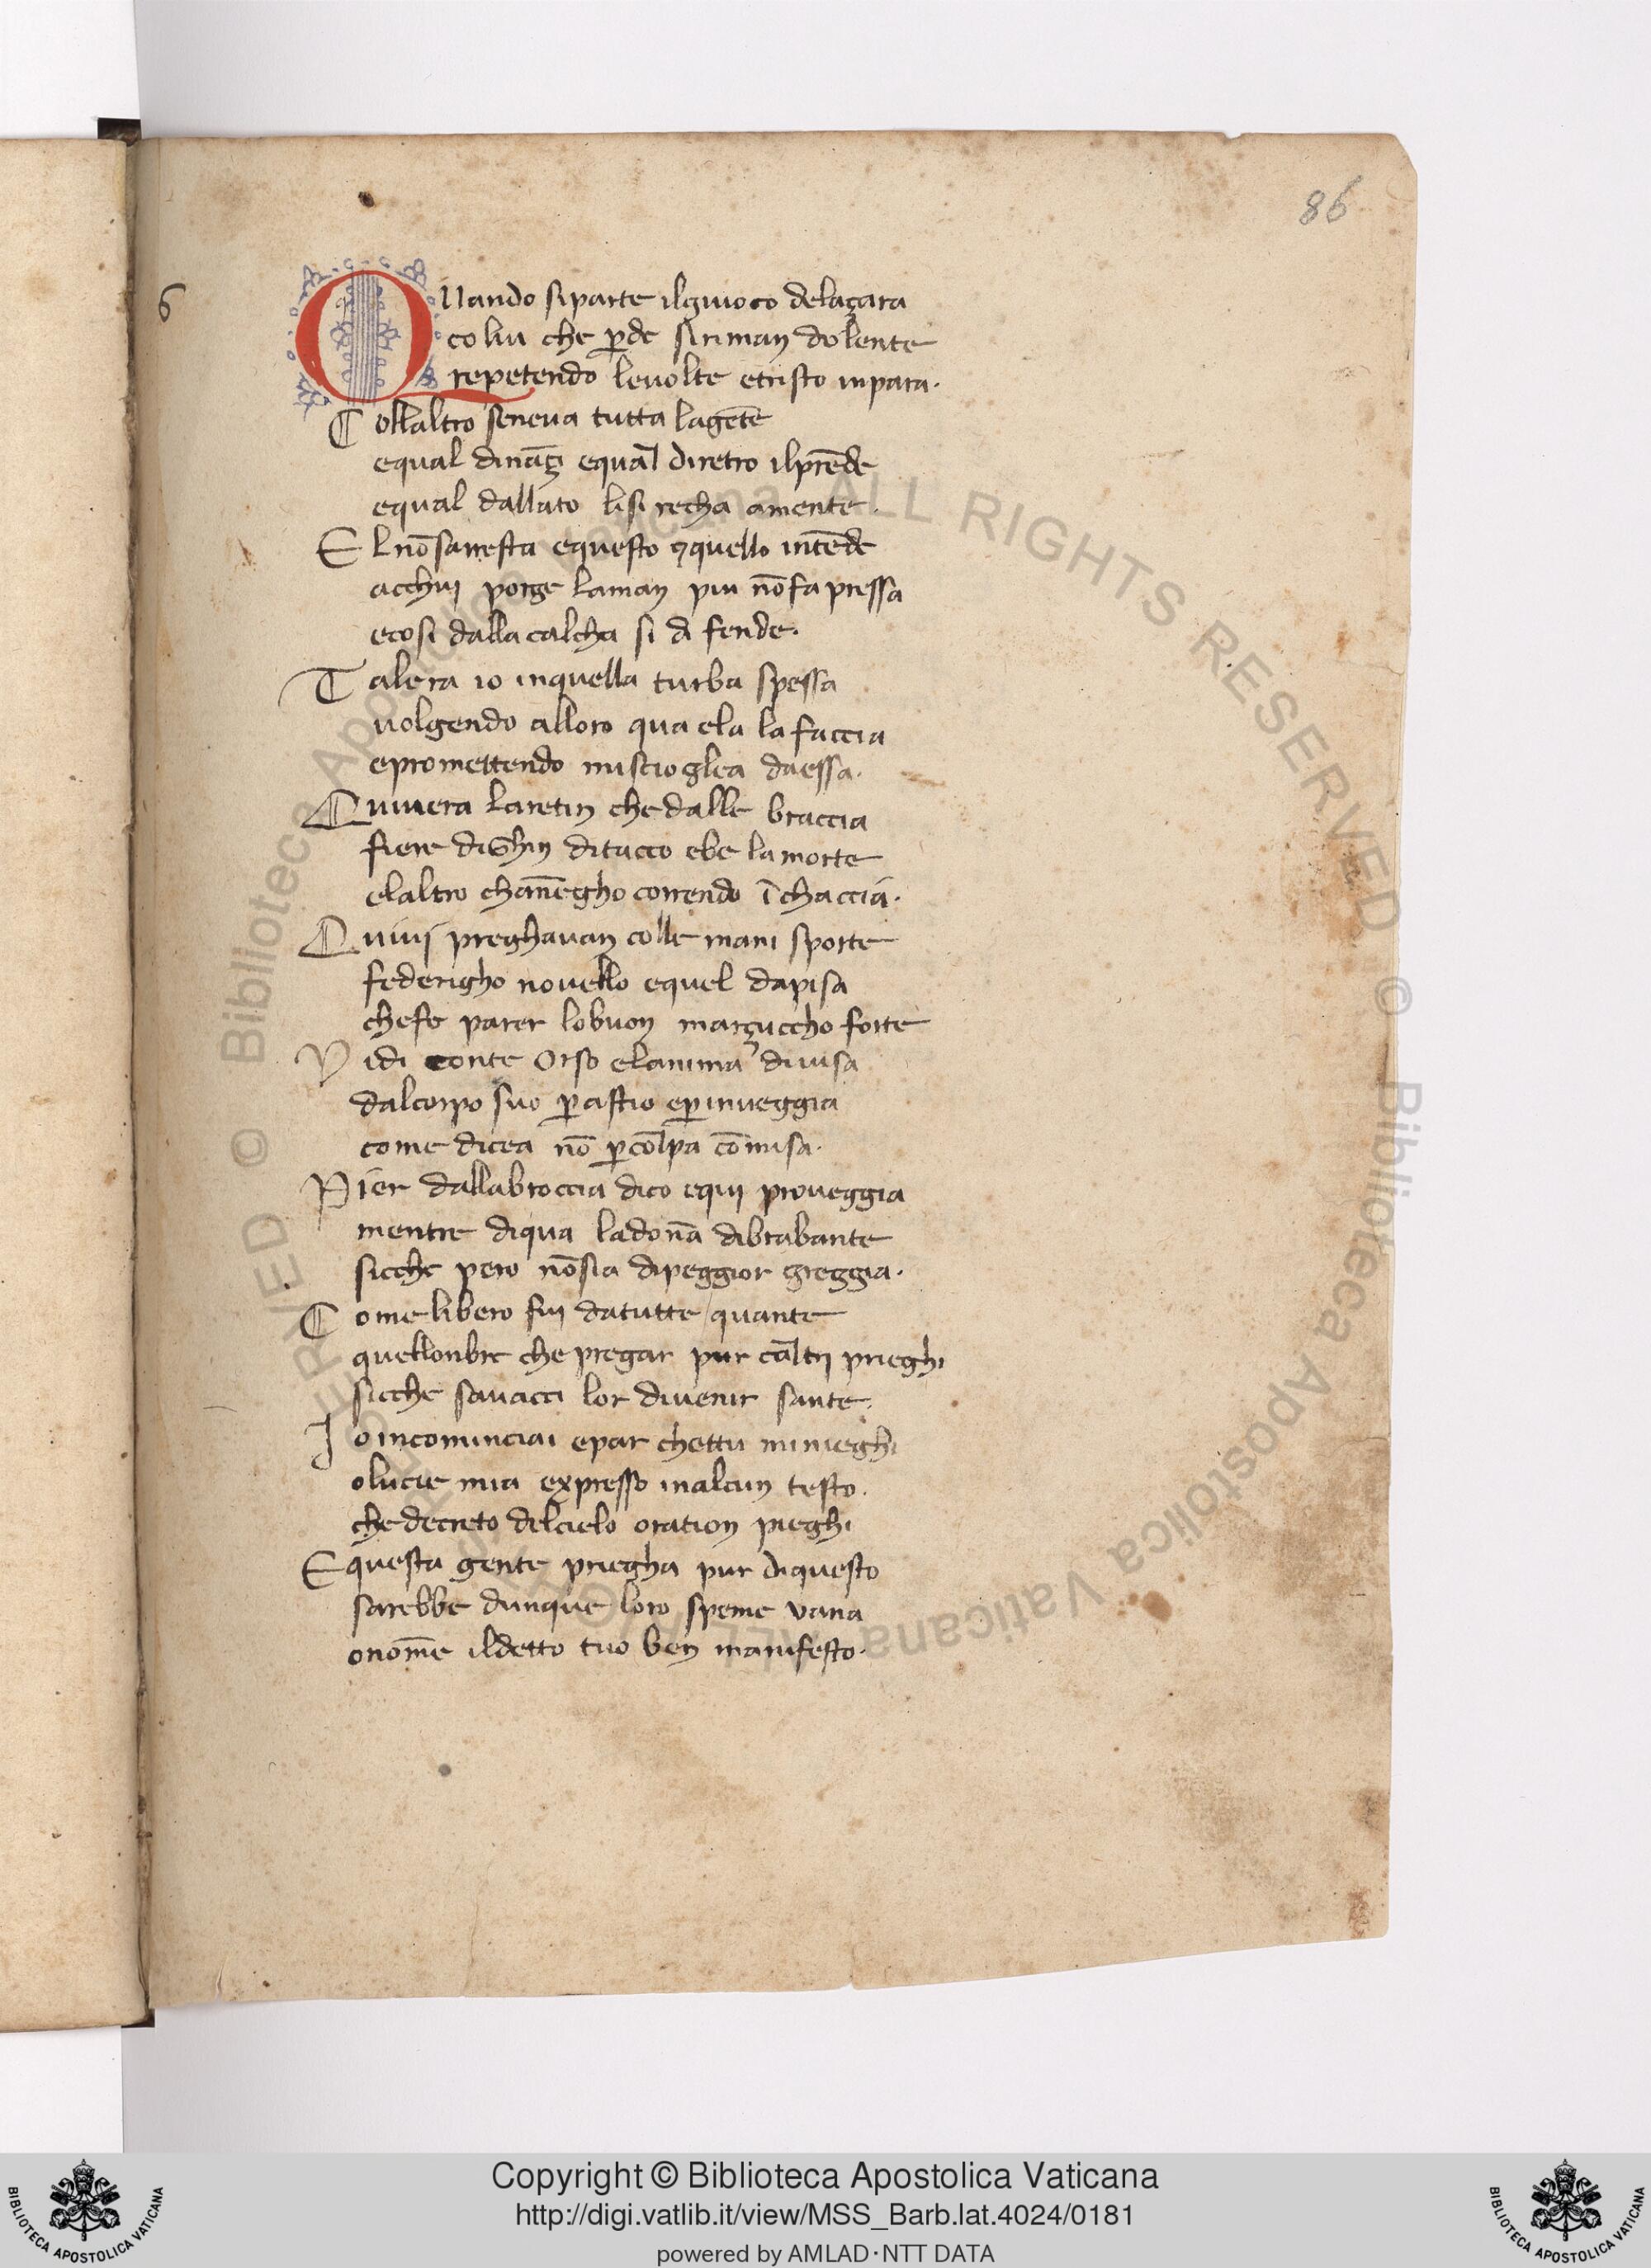 86
6
QUando siparte ilgiuoco delaçara
colui che ꝑde si riman dolente
repetendo leuolte etristo inpara.
Collaltro seneua tutta lagēte
equal dināçi equal diretro ilprēde
equal dallato lisi recha amente.
El nōsarresta equesto ⁊quello intēde
acchui porge laman piu nōfa pressa
ecosi dalla calcha si difende.
Talera io inquella turba spessa
uolgendo alloro qua ela lafaccia
epromettendo misciogliea daessa.
Quiuera laretin chedalle braccia
fiere dighin ditacco ebe lamorte
elaltro chanēgho correndo ī chaccia.
Quiuj preghauan colle mani sporte
federigho nouello equel dapisa
chefe parer lobuon marçuccho forte
Vidi conte Orso elanima diuisa
dalcorpo suo ꝑastio eꝑinueggia
come dicea nō ꝑcolpa cōmisa.
Pier dallabroccia dico equi proueggia
mentre diqua ladonā dibrabante
sicche pero nōsia dipeggior greggia.
Come libero fui datutte quante
quellonbre che pregar pur caltri prieghi
sicche sauacci lor diuenir sante.
Io incominciai epar chettu minieghi
olucie mia expresso inalcun testo.
che decreto delcielo oration pieghi
Equesta gente priegha pur diquesto
sarebbe dunque loro speme vana
onomē ildetto tuo ben manifesto.
© Biblioteca Apostolica Vaticana ALL RIGHTS RESERVED © Biblioteca Apostolica Vaticana ALL RIGHTS RESERVED
Copyright © Biblioteca Apostolica Vaticana
http://digi.vatlib.it/view/MSS_Barb.lat.4024/0181
powered by AMLAD·NTT DATA
BIBLIOTECA APOSTOLICA VATICANA
BIBLIOTECA APOSTOLICA VATICANA